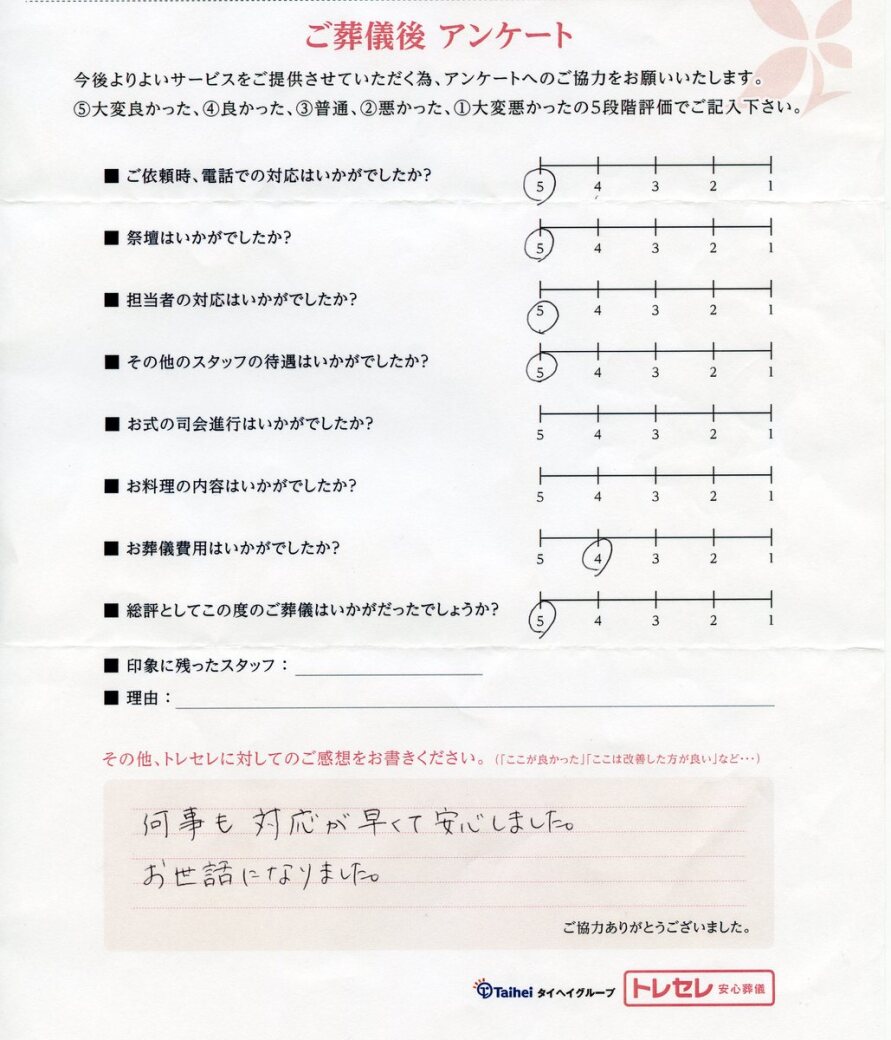 ご葬儀後 アンケート
今後よりよいサービスをご提供させていただく為、アンケートへのご協力をお願いいたします。
⑤大変良かった、④良かった、③普通、②悪かった、①大変悪かったの5段階評価でご記入下さい。
■ ご依頼時、電話での対応はいかがでしたか?
5 4 3 2 1
■ 祭壇はいかがでしたか?
5 4 3 2 1
■ 担当者の対応はいかがでしたか?
5 4 3 2 1
■ その他のスタッフの待遇はいかがでしたか?
5 4 3 2 1
■ お式の司会進行はいかがでしたか?
5 4 3 2 1
■ お料理の内容はいかがでしたか?
5 4 3 2 1
■ お葬儀費用はいかがでしたか?
5 4 3 2 1
■ 総評としてこの度のご葬儀はいかがだったでしょうか?
5 4 3 2 1
■ 印象に残ったスタッフ：
■ 理由：
その他、トレセレに対してのご感想をお書きください。(「ここが良かった」「ここは改善した方が良い」など…)
何事も 対応が早くて安心しました。
お世話になりました。
ご協力ありがとうございました。
Taihei タイヘイグループ トレセレ 安心葬儀